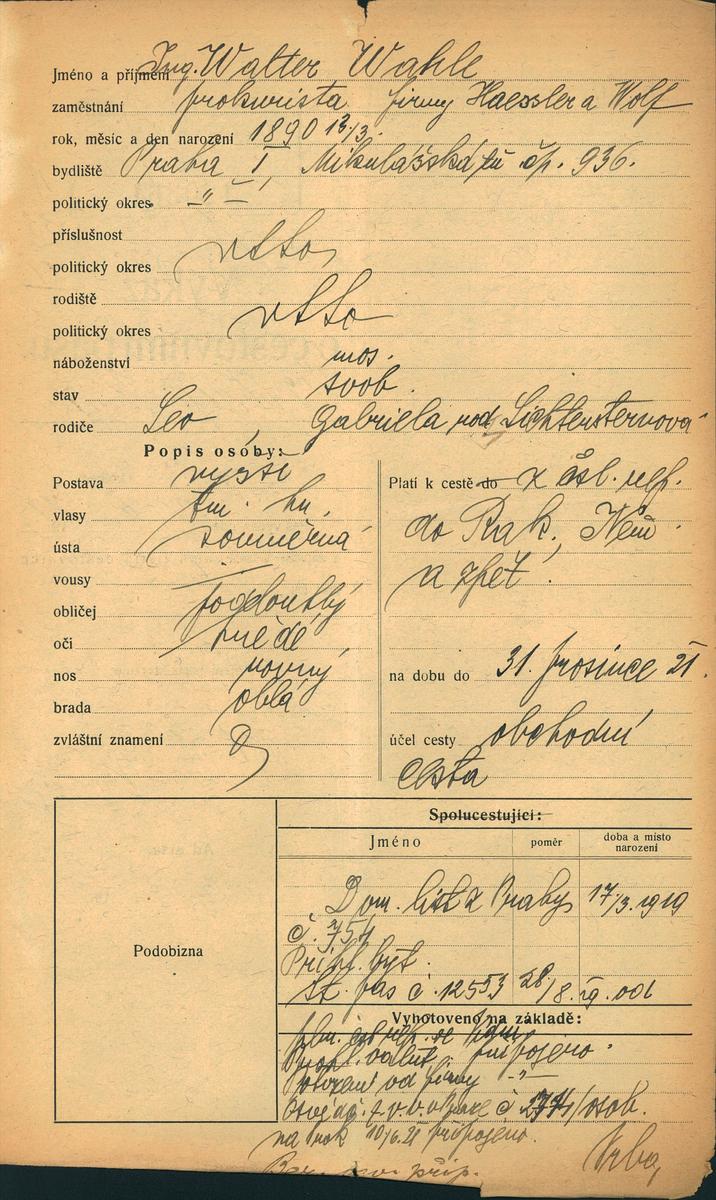 Jméno a příjmení Ing. Walter Wahle
zaměstnání prokurista firmy Haessler a Wolf
rok, měsíc a den narození 1890 13/3.
bydliště Praha I, Mikulášská tř. čp. 936.
politický okres -"-
příslušnost
politický okres
rodiště
politický okres
náboženství mos.
stav svob.
rodiče Leo, Gabriela rod. Lichtensternová
Popis osóby:
Postava vyšší
vlasy tm. hn.
ústa souměrná
vousy —
obličej podlouhlý
oči hnědé
nos rovný
brada oblá
zvláštní znamení
Platí k cestě do z čsl. rep.
do Rak., Něm.
a zpět.
na dobu do 31. prosince 21.
účel cesty obchodní
cesta
Podobizna
Spolucestující:
Jméno poměr doba a místo narození
Dom. list z Prahy 17/3. 1919
č. 754
Přihl. byt.
st. pas č. 12553 28/8. 19.
Vyhotoveno na základě:
připojeno.
Potvrzení od firmy -"-
č 2771/osob.
na rok 10/6.21 připojeno.
Vrba